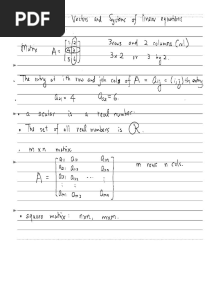 PDF
Vectors and Systems of linear equations
Matrix A = [1 2
3 2
5 6] 3 rows and 2 columns (col)
3x2 or 3 by 2.
The entry at ith row and jth col of A = aij = (i,j)th entry
a21 = 4 a32 = 6
• a scalar is a real number.
• The set of all real numbers is ℝ.
m x n matrix
A = [a11 a12 a1n
a21 a22 a2n
a31 a32 ...
am1 am2 amn] m rows n cols.
• square matrix : nxn, mxm.